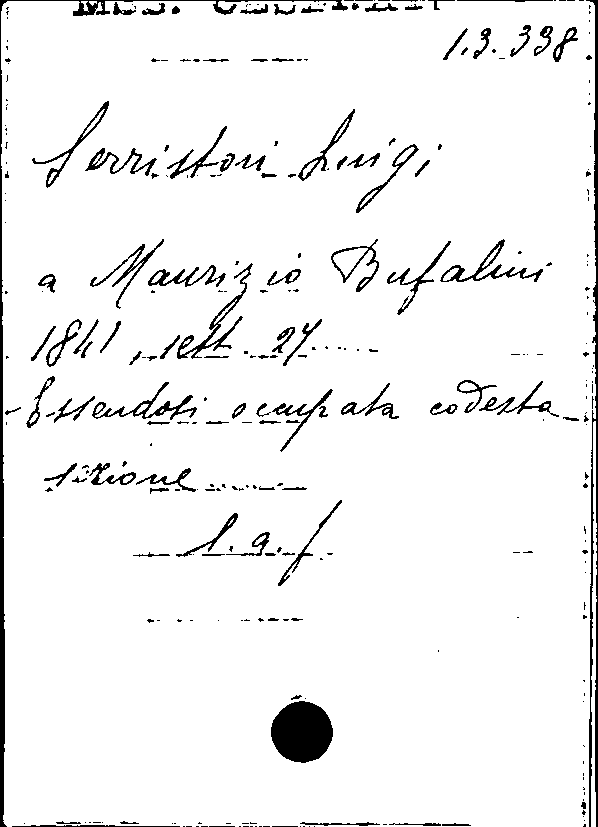 MSS.
1.3.338
Serristori Luigi
a Maurizio Bufalini
1841, sett. 27
Essendosi occupata codesta
sezione
l.a.f